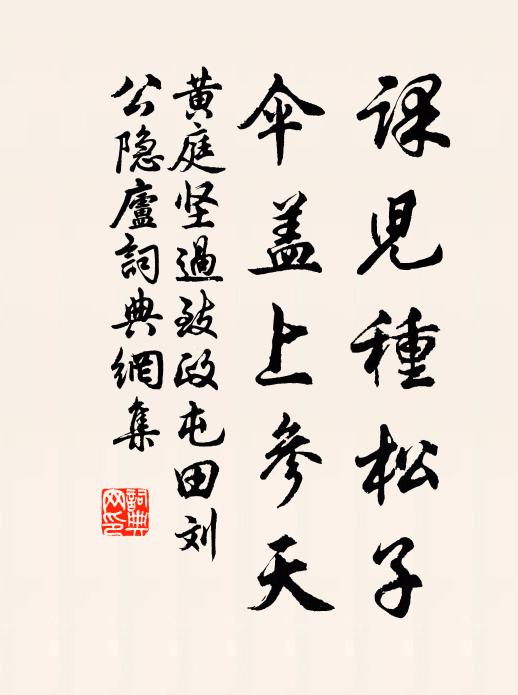 課兒種松子
伞盖上參天
黄庭坚過致政屯田刘
公隐廬詞典網集
詞典网印